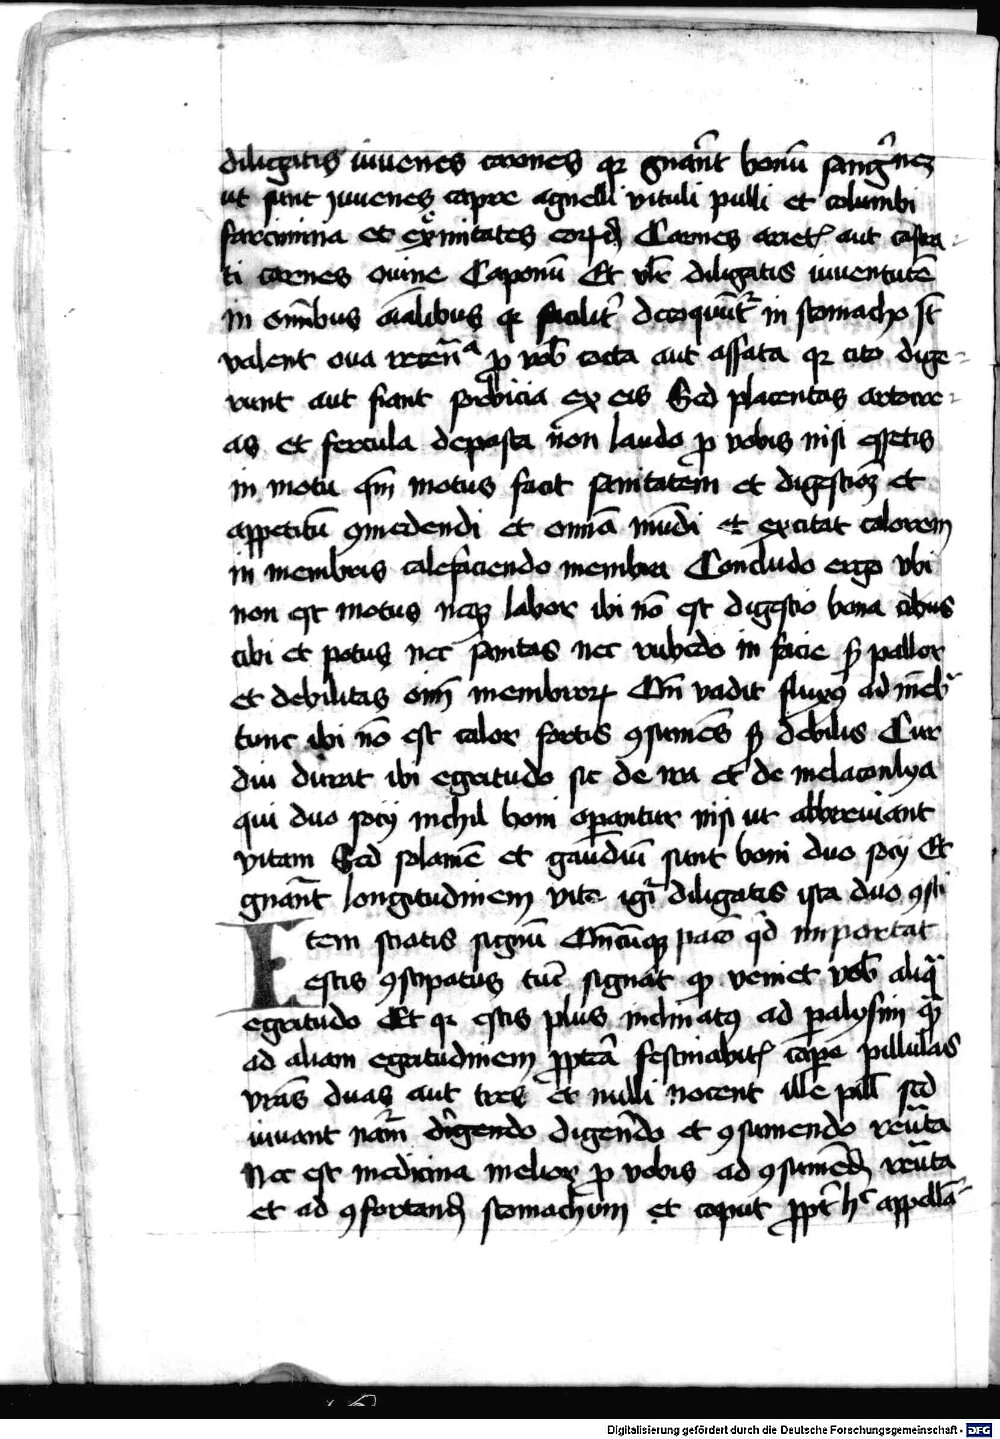 diligatis iuuenes carnes qr gn̄ant bonū sang'nē
ut sunt juuenes capre agnelli vituli pulli et columbi
farcimina et ex̊mitates corꝑis Carnes ariet aut castra-
ti carnes ouine Caponū Et vlr diligatis iuuentutē
in om̄ibus aīalibus qr facilit' dcoquūt' in stomacho st
valent oua recen̄a ꝓ vob cocta aut assata qr cito dige-
runt aut fiant sorbicia ex eis Sed placentas artocre-
as et fercula depasta non laudo ꝓ vobis nisi essetis
in motu qm̄ motus facit sanitatem et digestiōē et
appetitū ꝯmedendi et om̄ia mūdi et excitat calorem
in membris calefaciendo membra Concludo ergo vbi
non est motus neqꝫ labor ibi nō est digestio bona cibus
cibi et potus nec sanitas nec rubedo in facie sꝫ pallor
et debilitas om̄ membrorꝝ Qn̄ vadit fluxꝰ ad mēb'
tunc ibi nō est calor fortis ꝯsumēs sꝫ debilis Cur
diu durat ibi egritudo sic de ira et de melaconlya
qui duo socij nichil boni oꝑantur nisi ut abbreuiant
vitam Sed solamē et gaudiū sunt boni duo socij Et
gn̄ant longitudinem vite igr̄ diligatis ista duo ꝯsili
Item sciatis signū Qn̄cūqꝫ paco qd importat
estis ꝯstipatus tūc signāt qꝫ veniet vob aliq̄
egritudo Et qr estis plus inclinatꝰ ad ꝑalysim q̄ꝫ
ad aliam egritudinem ꝓpterā festinabit caꝑe pillulas
vrās duas aut tres et nulli nocent ille pill sed
iuuant nām dirigendo digerēdo et ꝯsumendo reūta
Nec est medicina melior ꝓ vobis ad ꝯsumēdꝫ reūta
et ad ꝯfortandꝫ stomachum et caput ꝓpt' h' appellā-
Digitalisierung gefördert durch die Deutsche Forschungsgemeinschaft - DFG